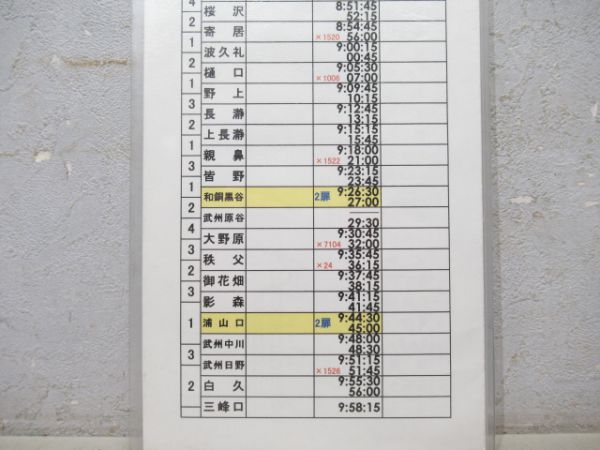 4
桜沢 8:51:45
52:15
2
寄居 8:54:45
×1520 56:00
1
波久礼 9:00:15
00:45
2
樋口 9:05:30
×1006 07:00
1
野上 9:09:45
10:15
3
長瀞 9:12:45
13:15
2
上長瀞 9:15:15
15:45
1
親鼻 9:18:00
×1522 21:00
3
皆野 9:23:15
23:45
1
和銅黒谷 2扉 9:26:30
27:00
2
武州原谷
29:30
4
大野原 9:30:45
×7104 32:00
3
秩父 9:35:45
×24 36:15
2
御花畑 9:37:45
38:15
3
影森 9:41:15
41:45
1
浦山口 2扉 9:44:30
45:00
武州中川 9:48:00
48:30
3
武州日野 9:51:15
×1526 51:45
2
白久 9:55:30
56:00
三峰口 9:58:15